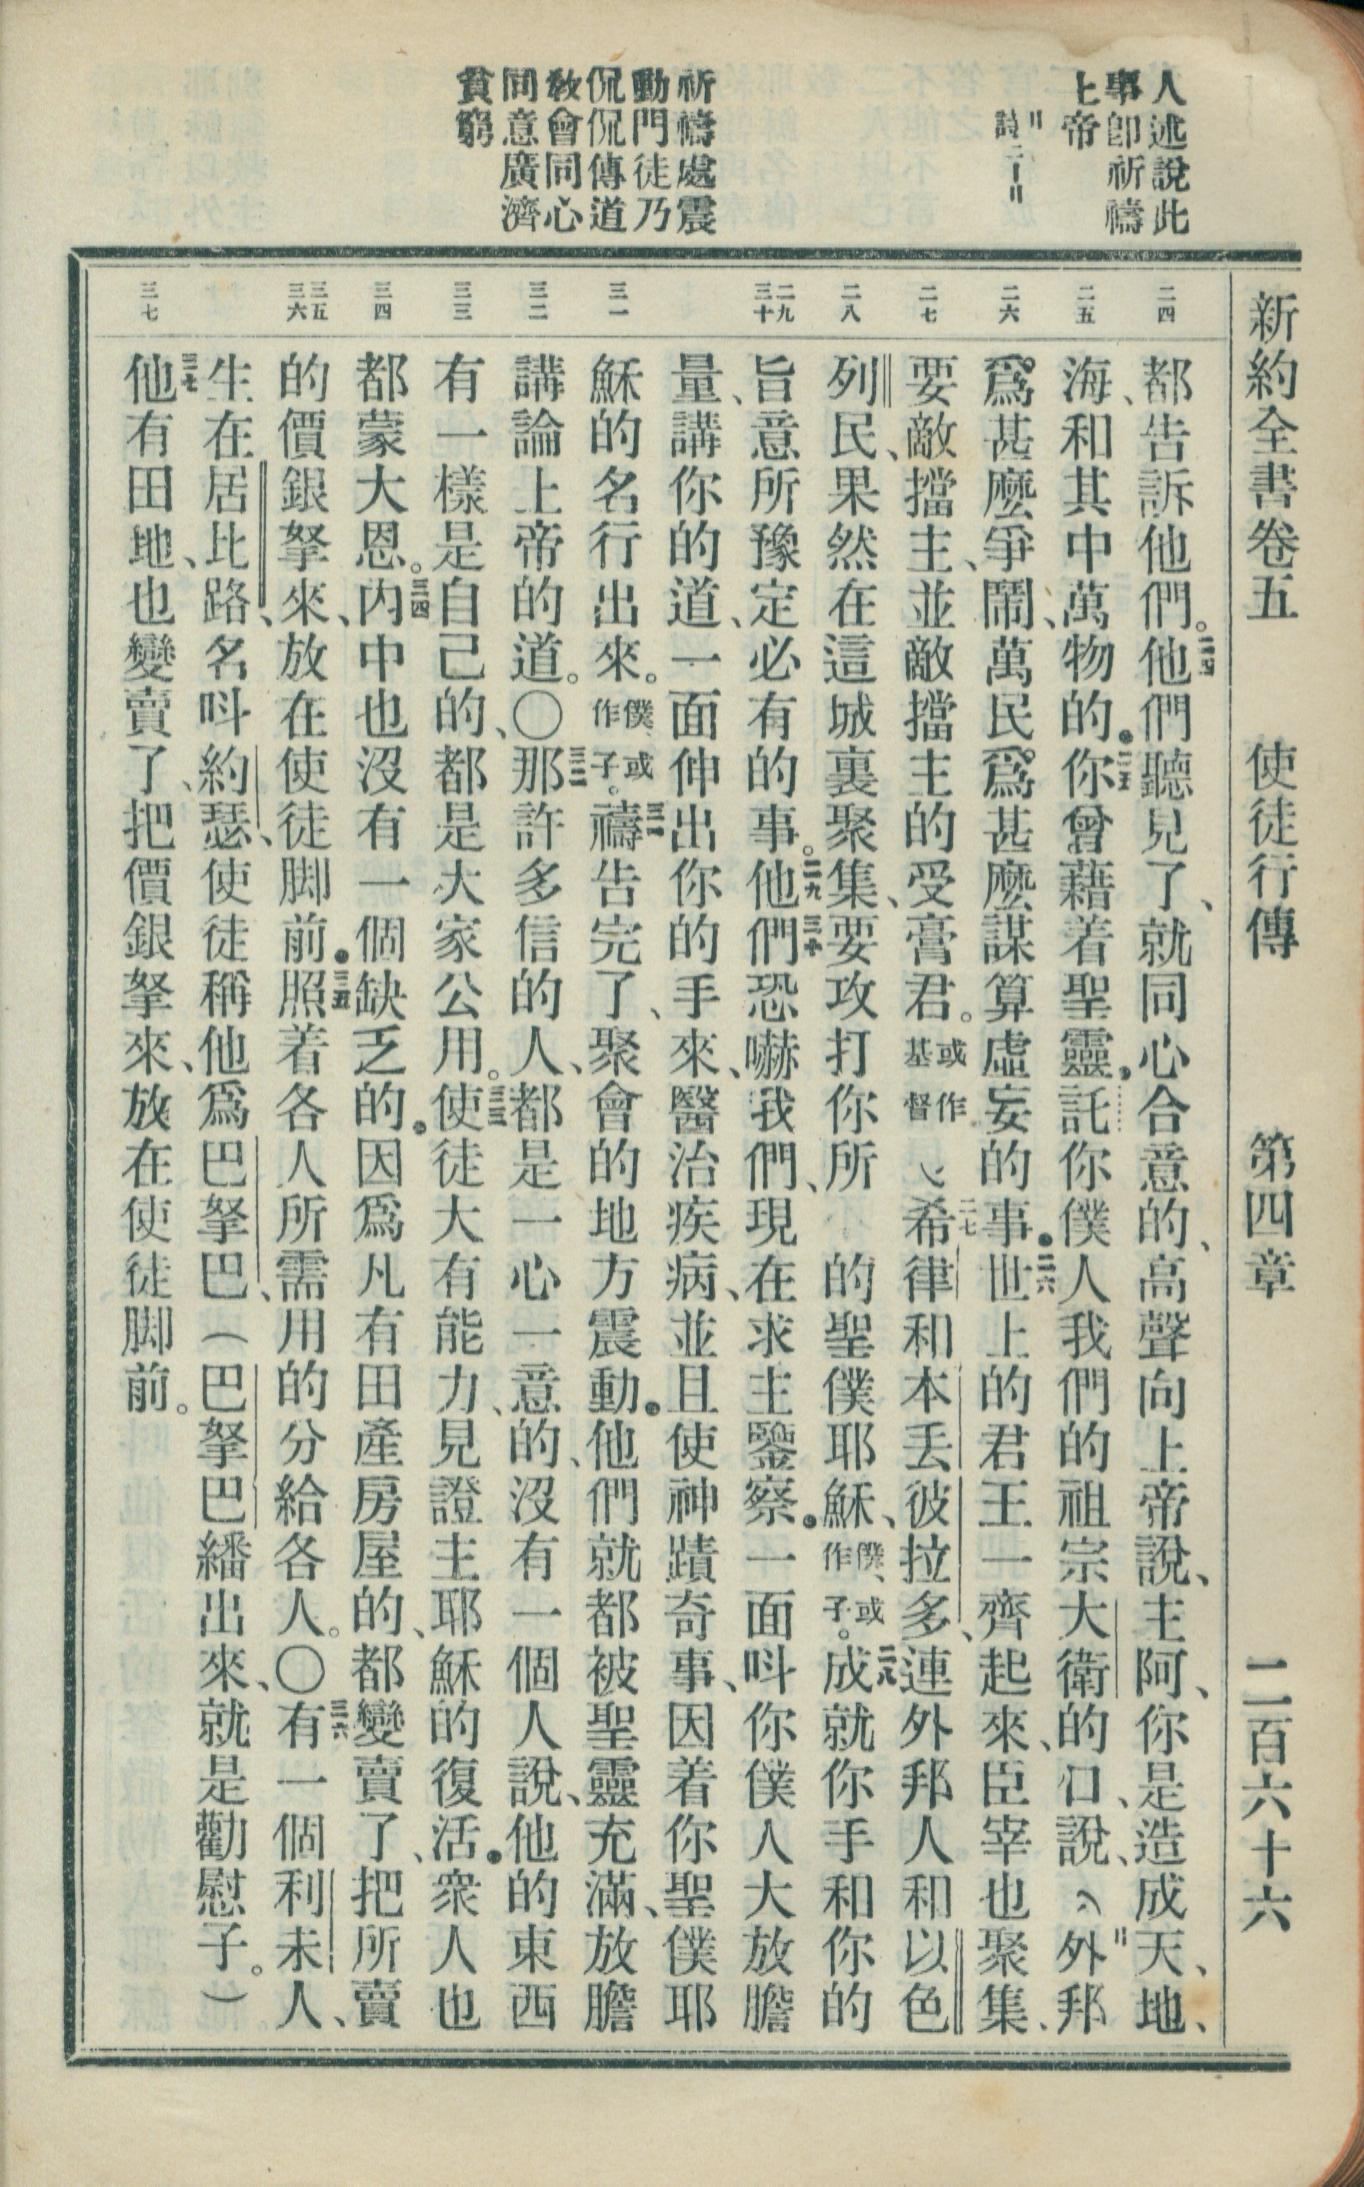 人述說此
事卽祈禱
上帝
詩二
祈禱處震
動門徒乃
侃侃傳道
敎會同心
同意廣濟
貧窮
新約全書卷五 使徒行傳 第四章 二百六十六
二四
二五
二六
二七
二八
二九
三十
三一
三二
三三
三四
三五
三六
三七
都告訴他們。二四他們聽見了、就同心合意的、高聲向上帝說、主阿、你是造成天、地、
海、和其中萬物的.二五你曾藉着聖靈、託你僕人我們的祖宗大衛的口、說、外邦
爲甚麼爭鬧、萬民爲甚麼謀算虛妄的事.二六世上的君王一齊起來、臣宰也聚集、
要敵擋主、並敵擋主的受膏君。或作基督二七希律和本丟彼拉多、連外邦人和以色
列民、果然在這城裏聚集、要攻打你所 的聖僕耶穌、僕、或作子。二八成就你手和你的
旨意所豫定必有的事。二九他們三十恐嚇我們、現在求主鑒察.一面呌你僕人大放膽
量、講你的道、一面伸出你的手來、醫治疾病、並且使神蹟奇事、因着你聖僕耶
穌的名行出來。僕或作子。三一禱告完了、聚會的地方震動.他們就都被聖靈充滿、放膽
講論上帝的道。〇三二那許多信的人、都是一心一意的、沒有一個人說、他的東西
有一樣是自己的、都是大家公用。三三使徒大有能力、見證主耶穌的復活.衆人也
都蒙大恩。三四內中也沒有一個缺乏的.因爲凡有田產房屋的、都變賣了、把所賣
的價銀拏來、放在使徒脚前.三五照着各人所需用的分給各人。〇三六有一個利未人、
生在居比路、名呌約瑟、使徒稱他爲巴拏巴、（巴拏巴繙出來、就是勸慰子。）
三七他有田地、也變賣了、把價銀拏來、放在使徒脚前。